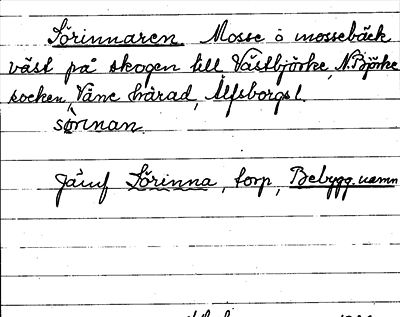 Sörinnaren. Mosse o mossebäck
väst på skogen till Västbjörke, N. Björke
socken, Väne härad, Älfsborgs l.
sörınnan.
Jämf Sörinna, torp, Bebygg.namn